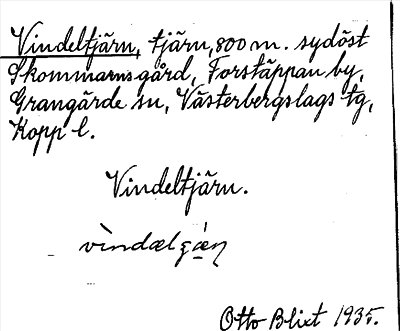 Vindeltjärn, tjärn, 800 m. sydöst
Skommarnsgård, Forstäppan by,
Grangärde sn, Västerbergslags tg,
Kopp l.
Vindeltjärn.
vìndælʂæ̀ɳ
Otto Blixt 1935.